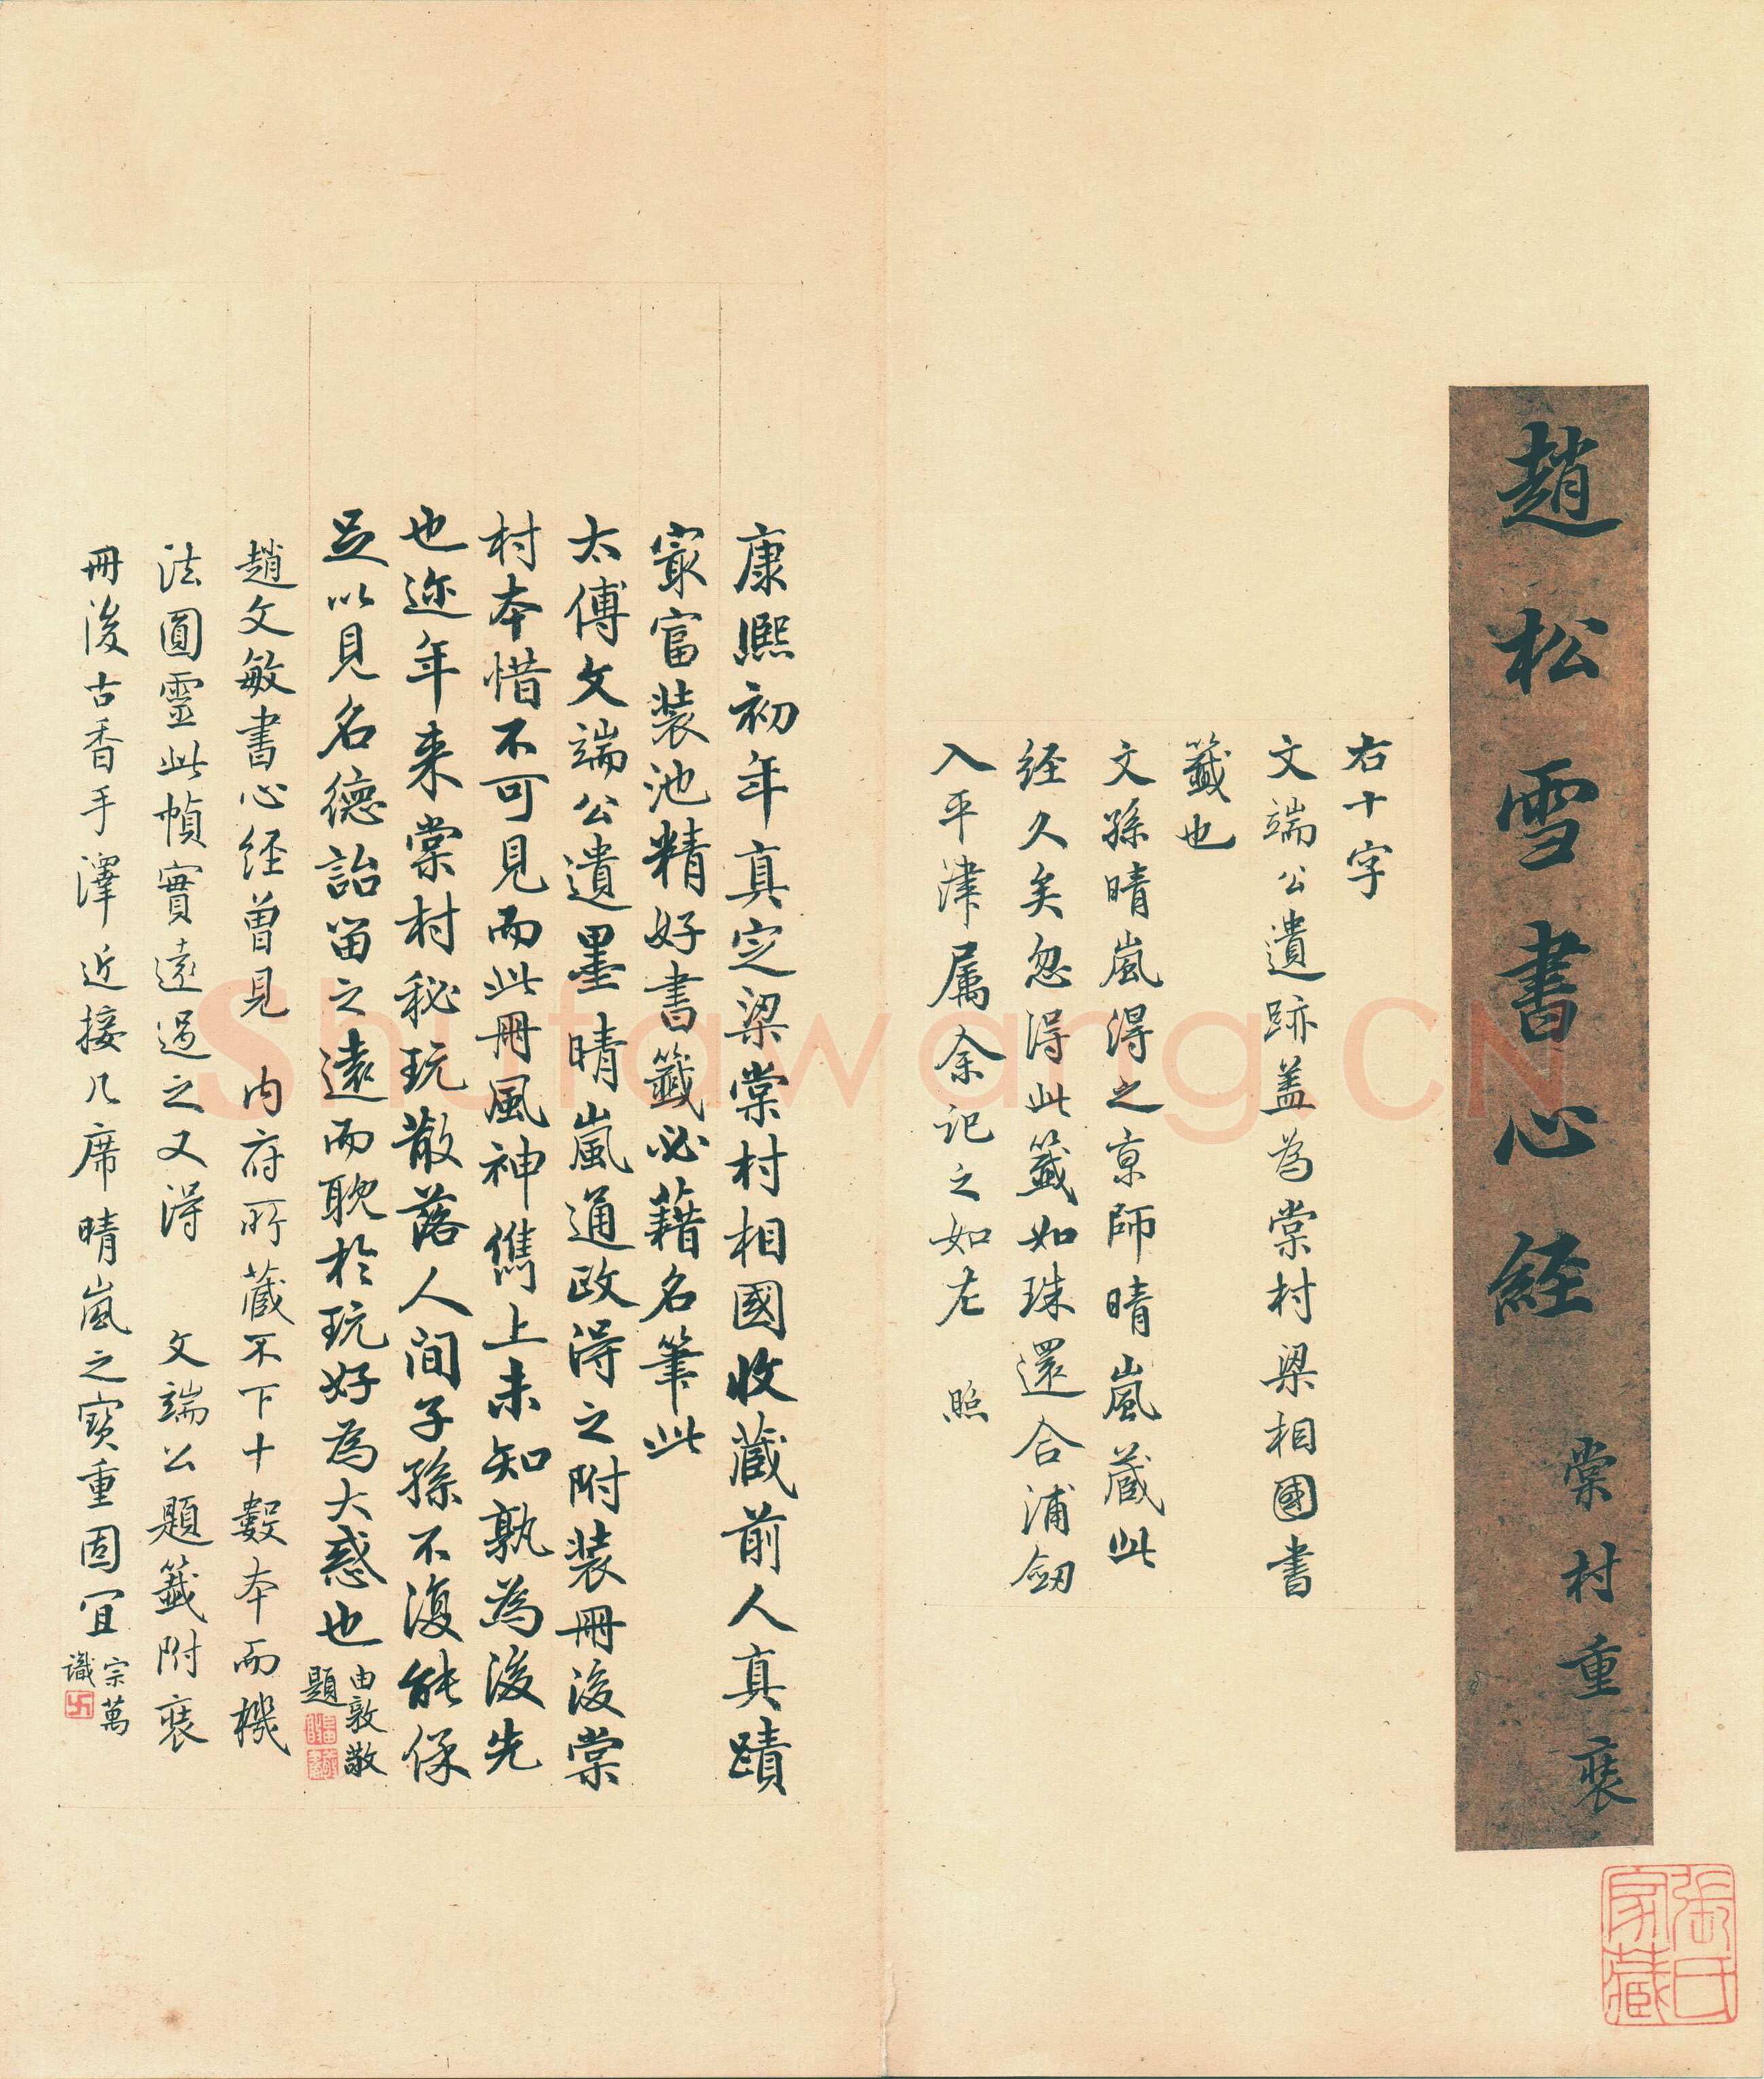 趙松雪書心經
棠村重裝
張氏家藏
右十字
文端公遺跡盖為棠村梁相國書
籤也
文孫晴嵐得之京師晴嵐蔵此
経久矣忽得此籤如珠還合浦劔
入平津属余記之如左 照
康熙初年真定梁棠村相國收蔵前人真蹟
㝡富装池精好書籤必藉名筆此
太傅文端公遺墨晴嵐通政得之附装冊後棠
村本惜不可見而此冊風神儁上未知孰為後先
也迩年来棠村秘玩散落人间子孫不復能保
足以見名德詒留之遠而耽於玩好為大惑也
由敦敬
題
趙文敏書心経曽見 内府所蔵不下十數本而機
法圓靈此幀實遠過之又得 文端公題籤附裝
冊後古香手澤近接几席晴嵐之寳重固宜
宗萬
識
卐
Shufawang.CN